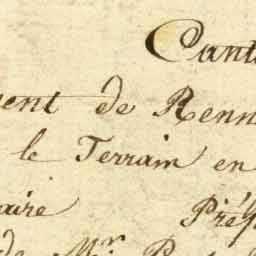 Cant
ent de Renn
le Terrain en
aire Préf
de Mr